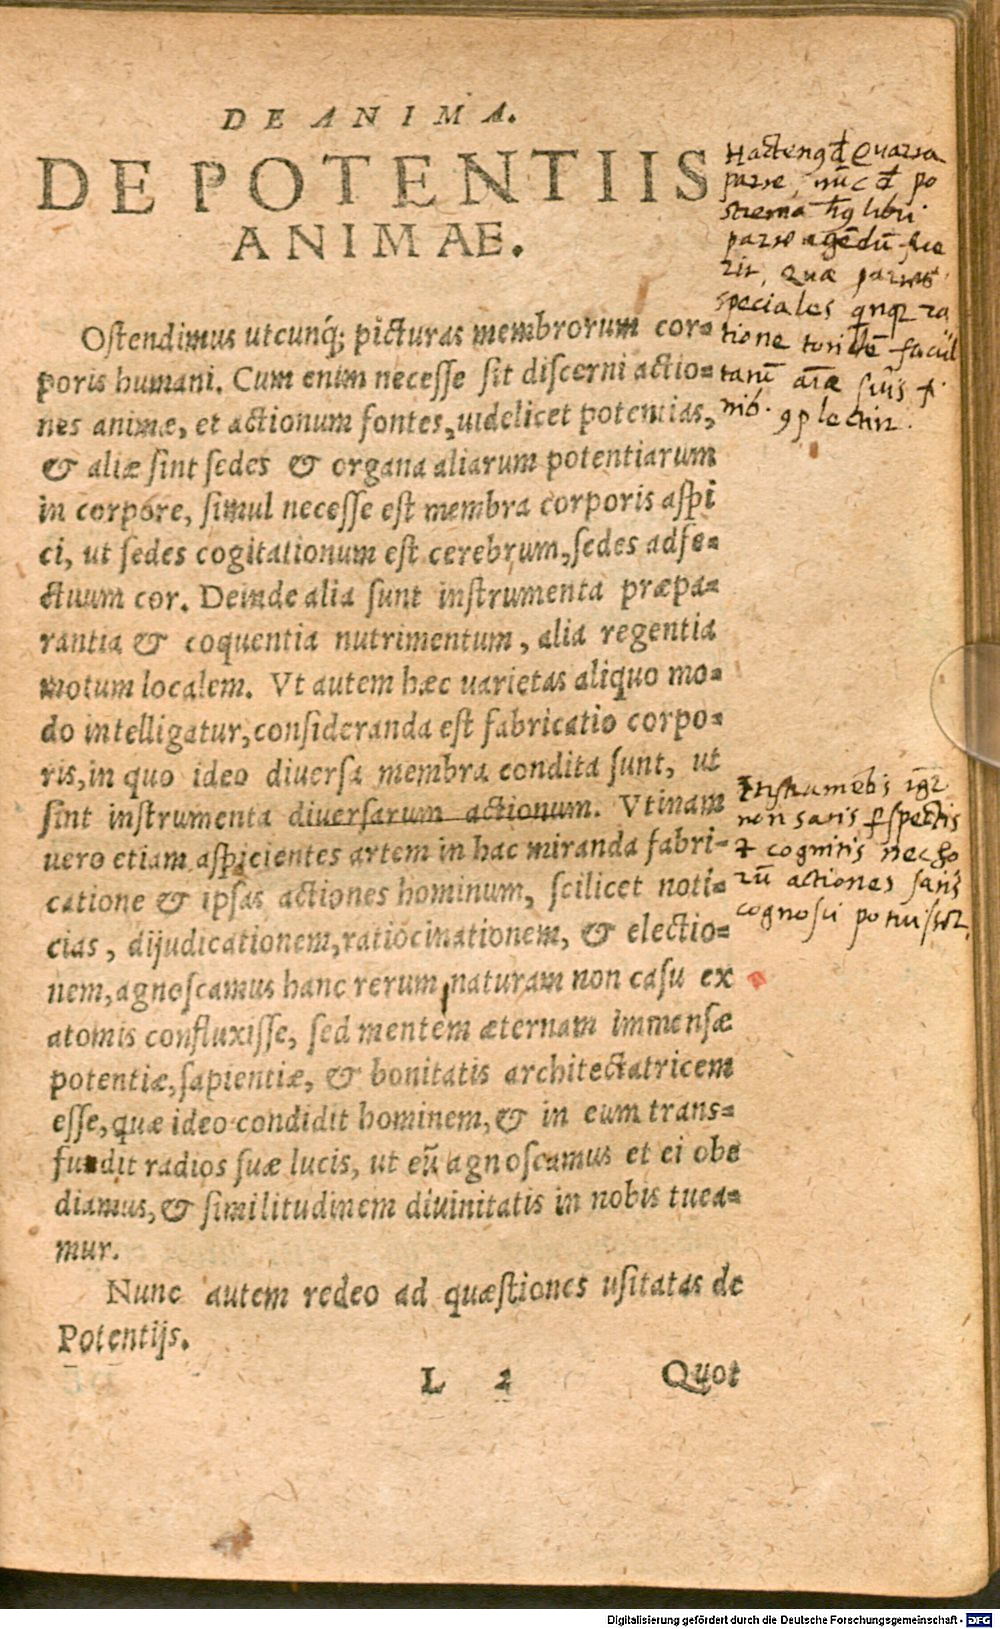 DE ANIMA.
DE POTENTIIS
ANIMAE.
Oſtendimus utcunq́; picturas membrorum cor=
poris humani. Cum enim neceſſe ſit diſcerni actio=
nes animæ, et actionum fontes, uidelicet potentias,
& aliæ ſint ſedes & organa aliarum potentiarum
in corpore, ſimul neceſſe eſt membra corporis aſpi
ci, ut ſedes cogitationum eſt cerebrum, ſedes adfe=
ctuum cor. Deinde alia ſunt inſtrumenta præpa=
rantia & coquentia nutrimentum, alia regentia
motum localem. Vt autem hæc uarietas aliquo mo=
do intelligatur, conſideranda eſt fabricatio corpo=
ris, in quo ideo diuerſa membra condita ſunt, ut
ſint inſtrumenta diuerſarum actionum. Vtinam
uero etiam aſpicientes artem in hac miranda fabri=
catione & ipſas actiones hominum, ſcilicet noti=
cias, dijudicationem, ratiocinationem, & electio=
nem, agnoſcamus hanc rerum naturam non caſu ex
atomis confluxiſſe, ſed mentem æternam immenſæ
potentiæ, ſapientiæ, & bonitatis architectatricem
eſſe, quæ ideo condidit hominem, & in eum trans=
fundit radios ſuæ lucis, ut eū agnoſcamus et ei obe
diamus, & ſimilitudinem diuinitatis in nobis tuea=
mur.
Nunc autem redeo ad quæſtiones uſitatas de
Potentijs.
L 2 Quot
parte, nūc
libri
parte agēdū
Quae
speciales
tione
non satis
cognitis nec ho
rū actiones satis
cognosci
Digitalisierung gefördert durch die Deutsche Forschungsgemeinschaft - DFG